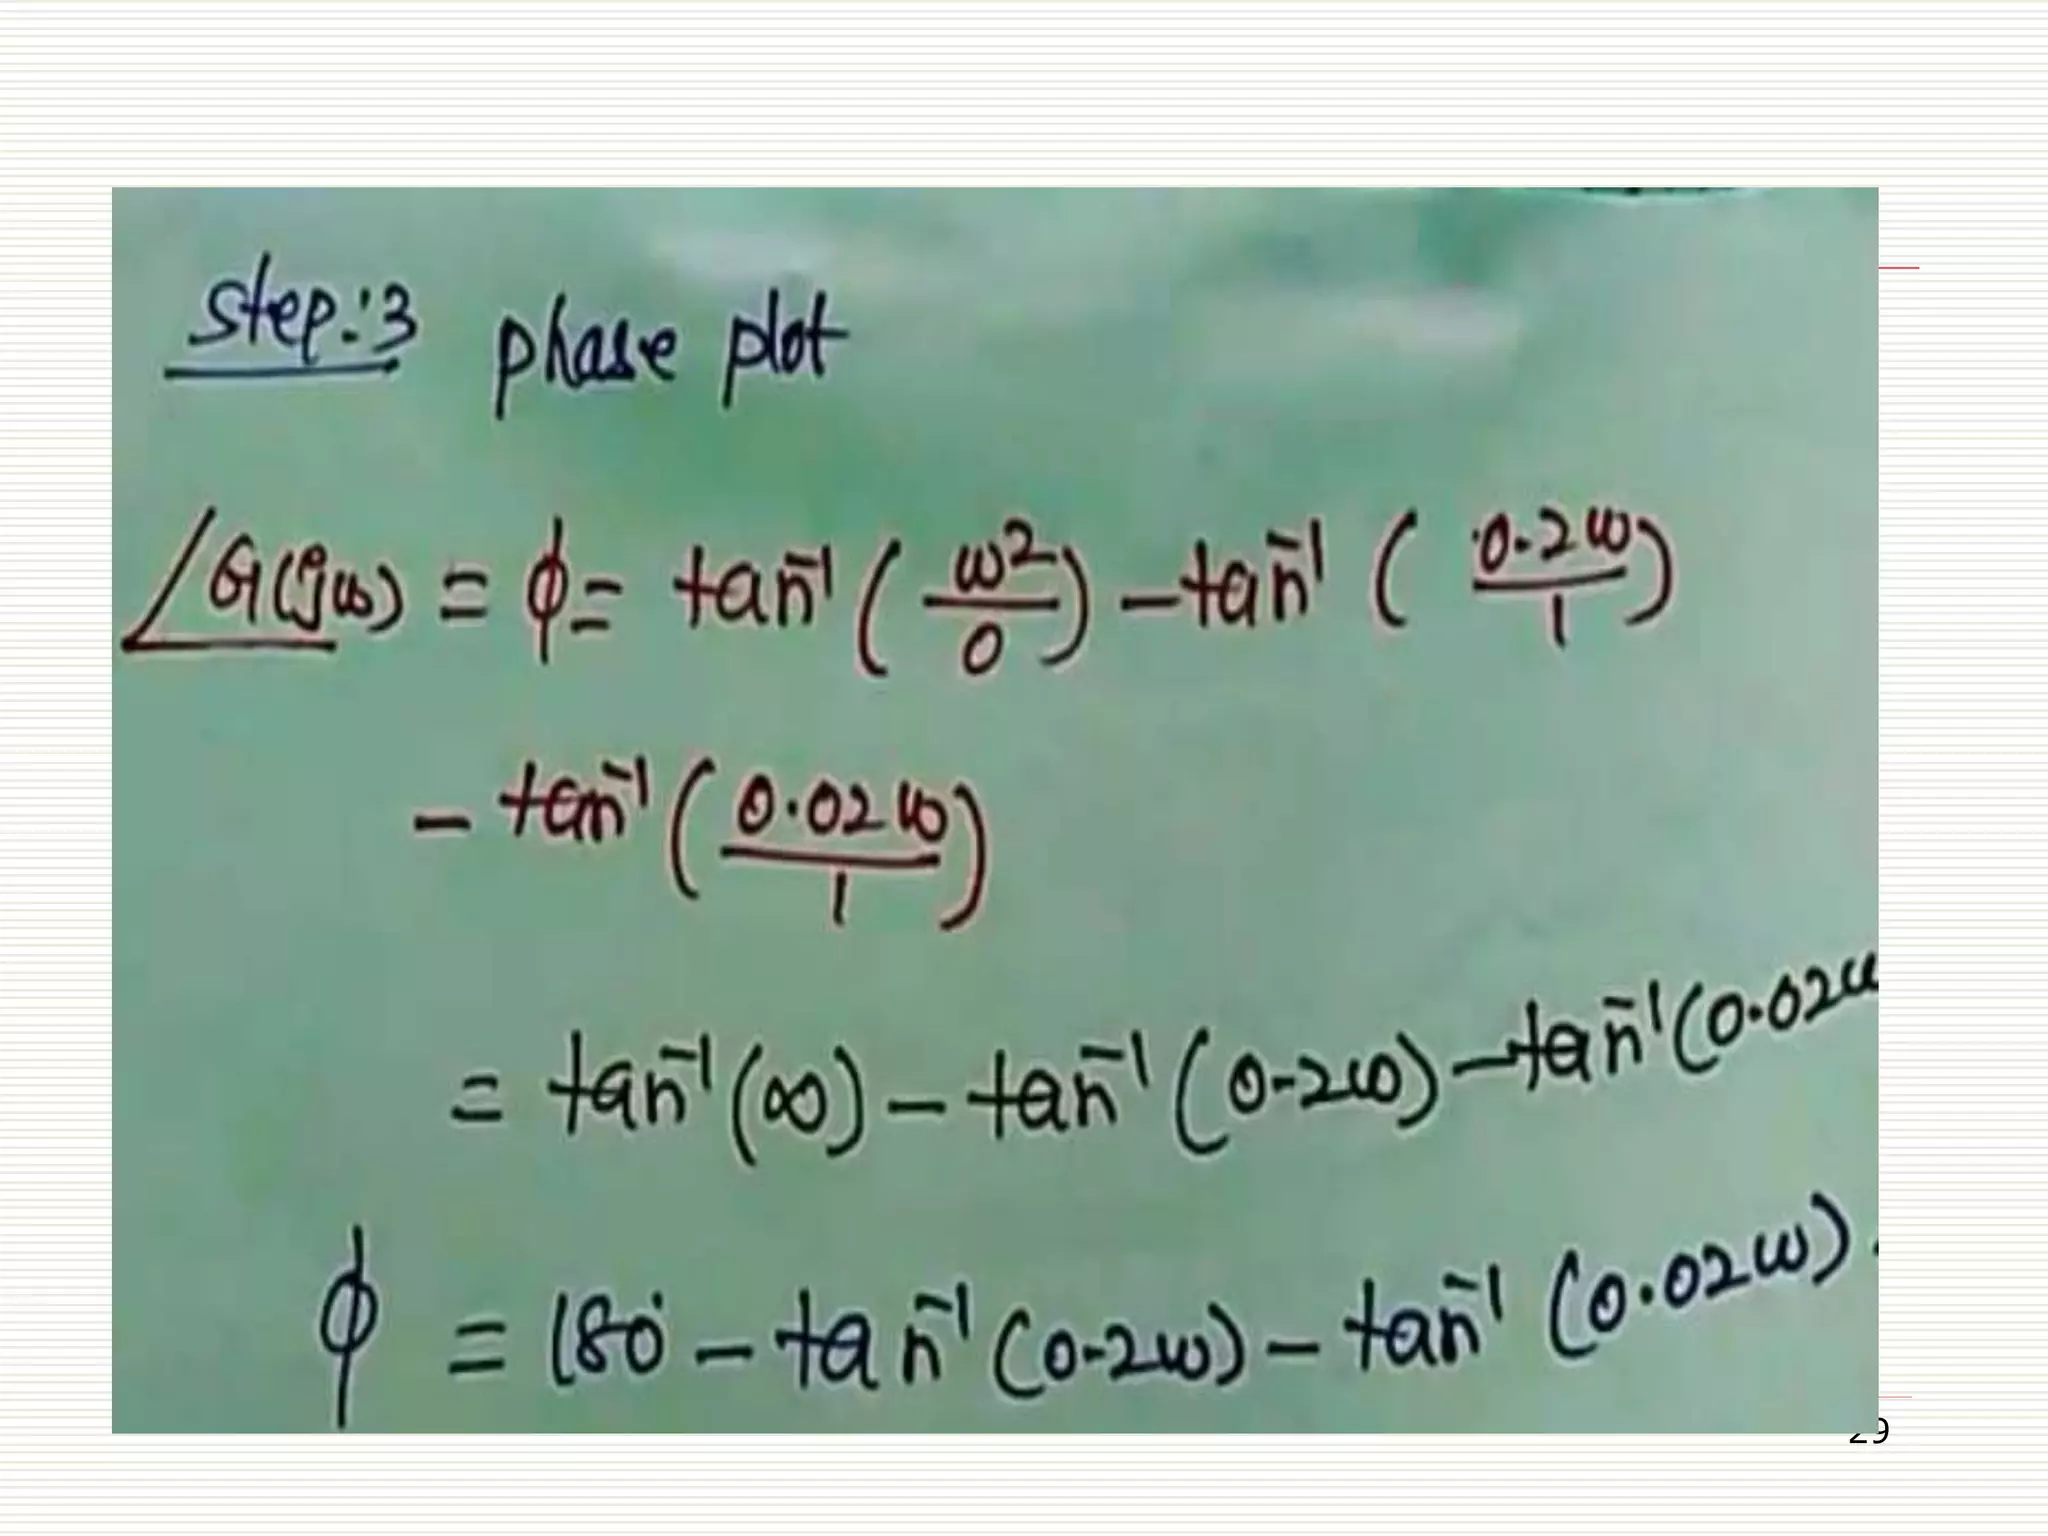 Step:3 phase plot
∠G(jω) = ϕ = tan⁻¹(ω²/0) – tan⁻¹(0.2ω/1)
– tan⁻¹(0.02ω/1)
= tan⁻¹(∞) – tan⁻¹(0.2ω) – tan⁻¹(0.02ω
ϕ = 180° – tan⁻¹(0.2ω) – tan⁻¹(0.02ω).
29